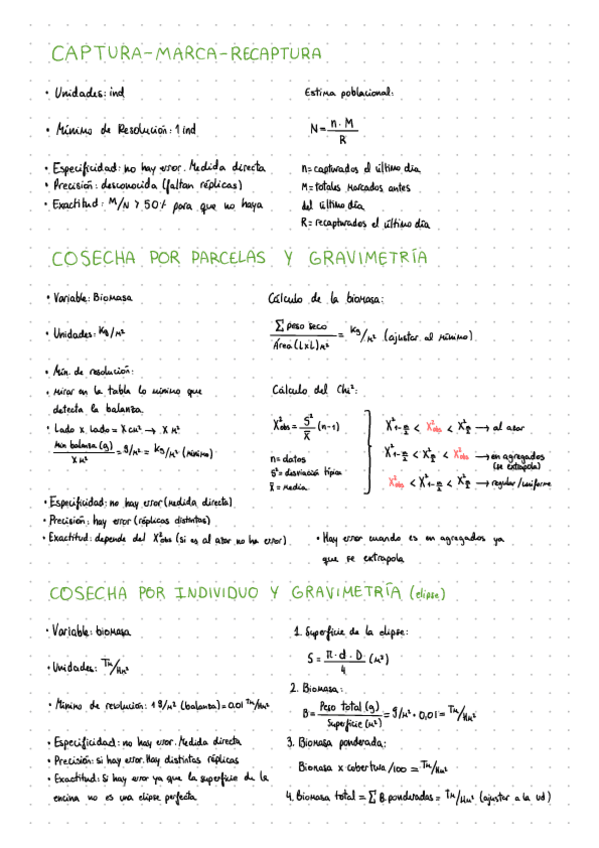 CAPTURA-MARCA-RECAPTURA
• Unidades: ind
• Mínimo de Resolución: 1 ind
• Especificidad: no hay error. Medida directa
• Precisión: desconocida (faltan réplicas)
• Exactitud: M/N > 50% para que no haya
Estima poblacional:
N = n · M / R
n = capturados el último día
M = totales marcados antes
del último día
R = recapturados el último día
COSECHA POR PARCELAS Y GRAVIMETRÍA
• Variable: Biomasa
• Unidades: Kg/m²
• Mín. de resolución:
• Mirar en la tabla lo mínimo que
detecta la balanza.
• Lado x Lado = X cm² → X m²
Mín balanza (g) / X m² = g/m² = Kg/m² (mínimo)
Cálculo de la biomasa:
Σ peso seco / Área (LxL) m² = Kg/m² (ajustar al mínimo)
Cálculo del Chi²:
X²obs = S² / X̄ (n-1)
n = datos
S² = desviación típica
X̄ = media
X²1-α/2 < X²obs < X²α/2 → al azar
X²1-α/2 < X²α/2 < X²obs → en agregados
(se extrapola)
X²obs < X²1-α/2 < X²α/2 → regular/uniforme
• Especificidad: no hay error (medida directa)
• Precisión: hay error (réplicas distintas)
• Exactitud: depende del X²obs (si es al azar no ha error)
• Hay error cuando es en agregados ya
que se extrapola
COSECHA POR INDIVIDUO Y GRAVIMETRÍA (elipse)
• Variable: biomasa
• Unidades: Tm/Hm²
• Mínimo de resolución: 1 g/m² (balanza) = 0,01 Tm/Hm²
• Especificidad: no hay error. Medida directa
• Precisión: si hay error. Hay distintas réplicas
• Exactitud: Si hay error ya que la superficie de la
encina no es una elipse perfecta.
1. Superficie de la elipse:
S = π · d · D / 4 (m²)
2. Biomasa:
B = Peso total (g) / Superficie (m²) = g/m² · 0,01 = Tm/Hm²
3. Biomasa ponderada:
Biomasa x cobertura/100 = Tm/Hm²
4. Biomasa total = Σ B. ponderadas = Tm/Hm² (ajustar a la ud)